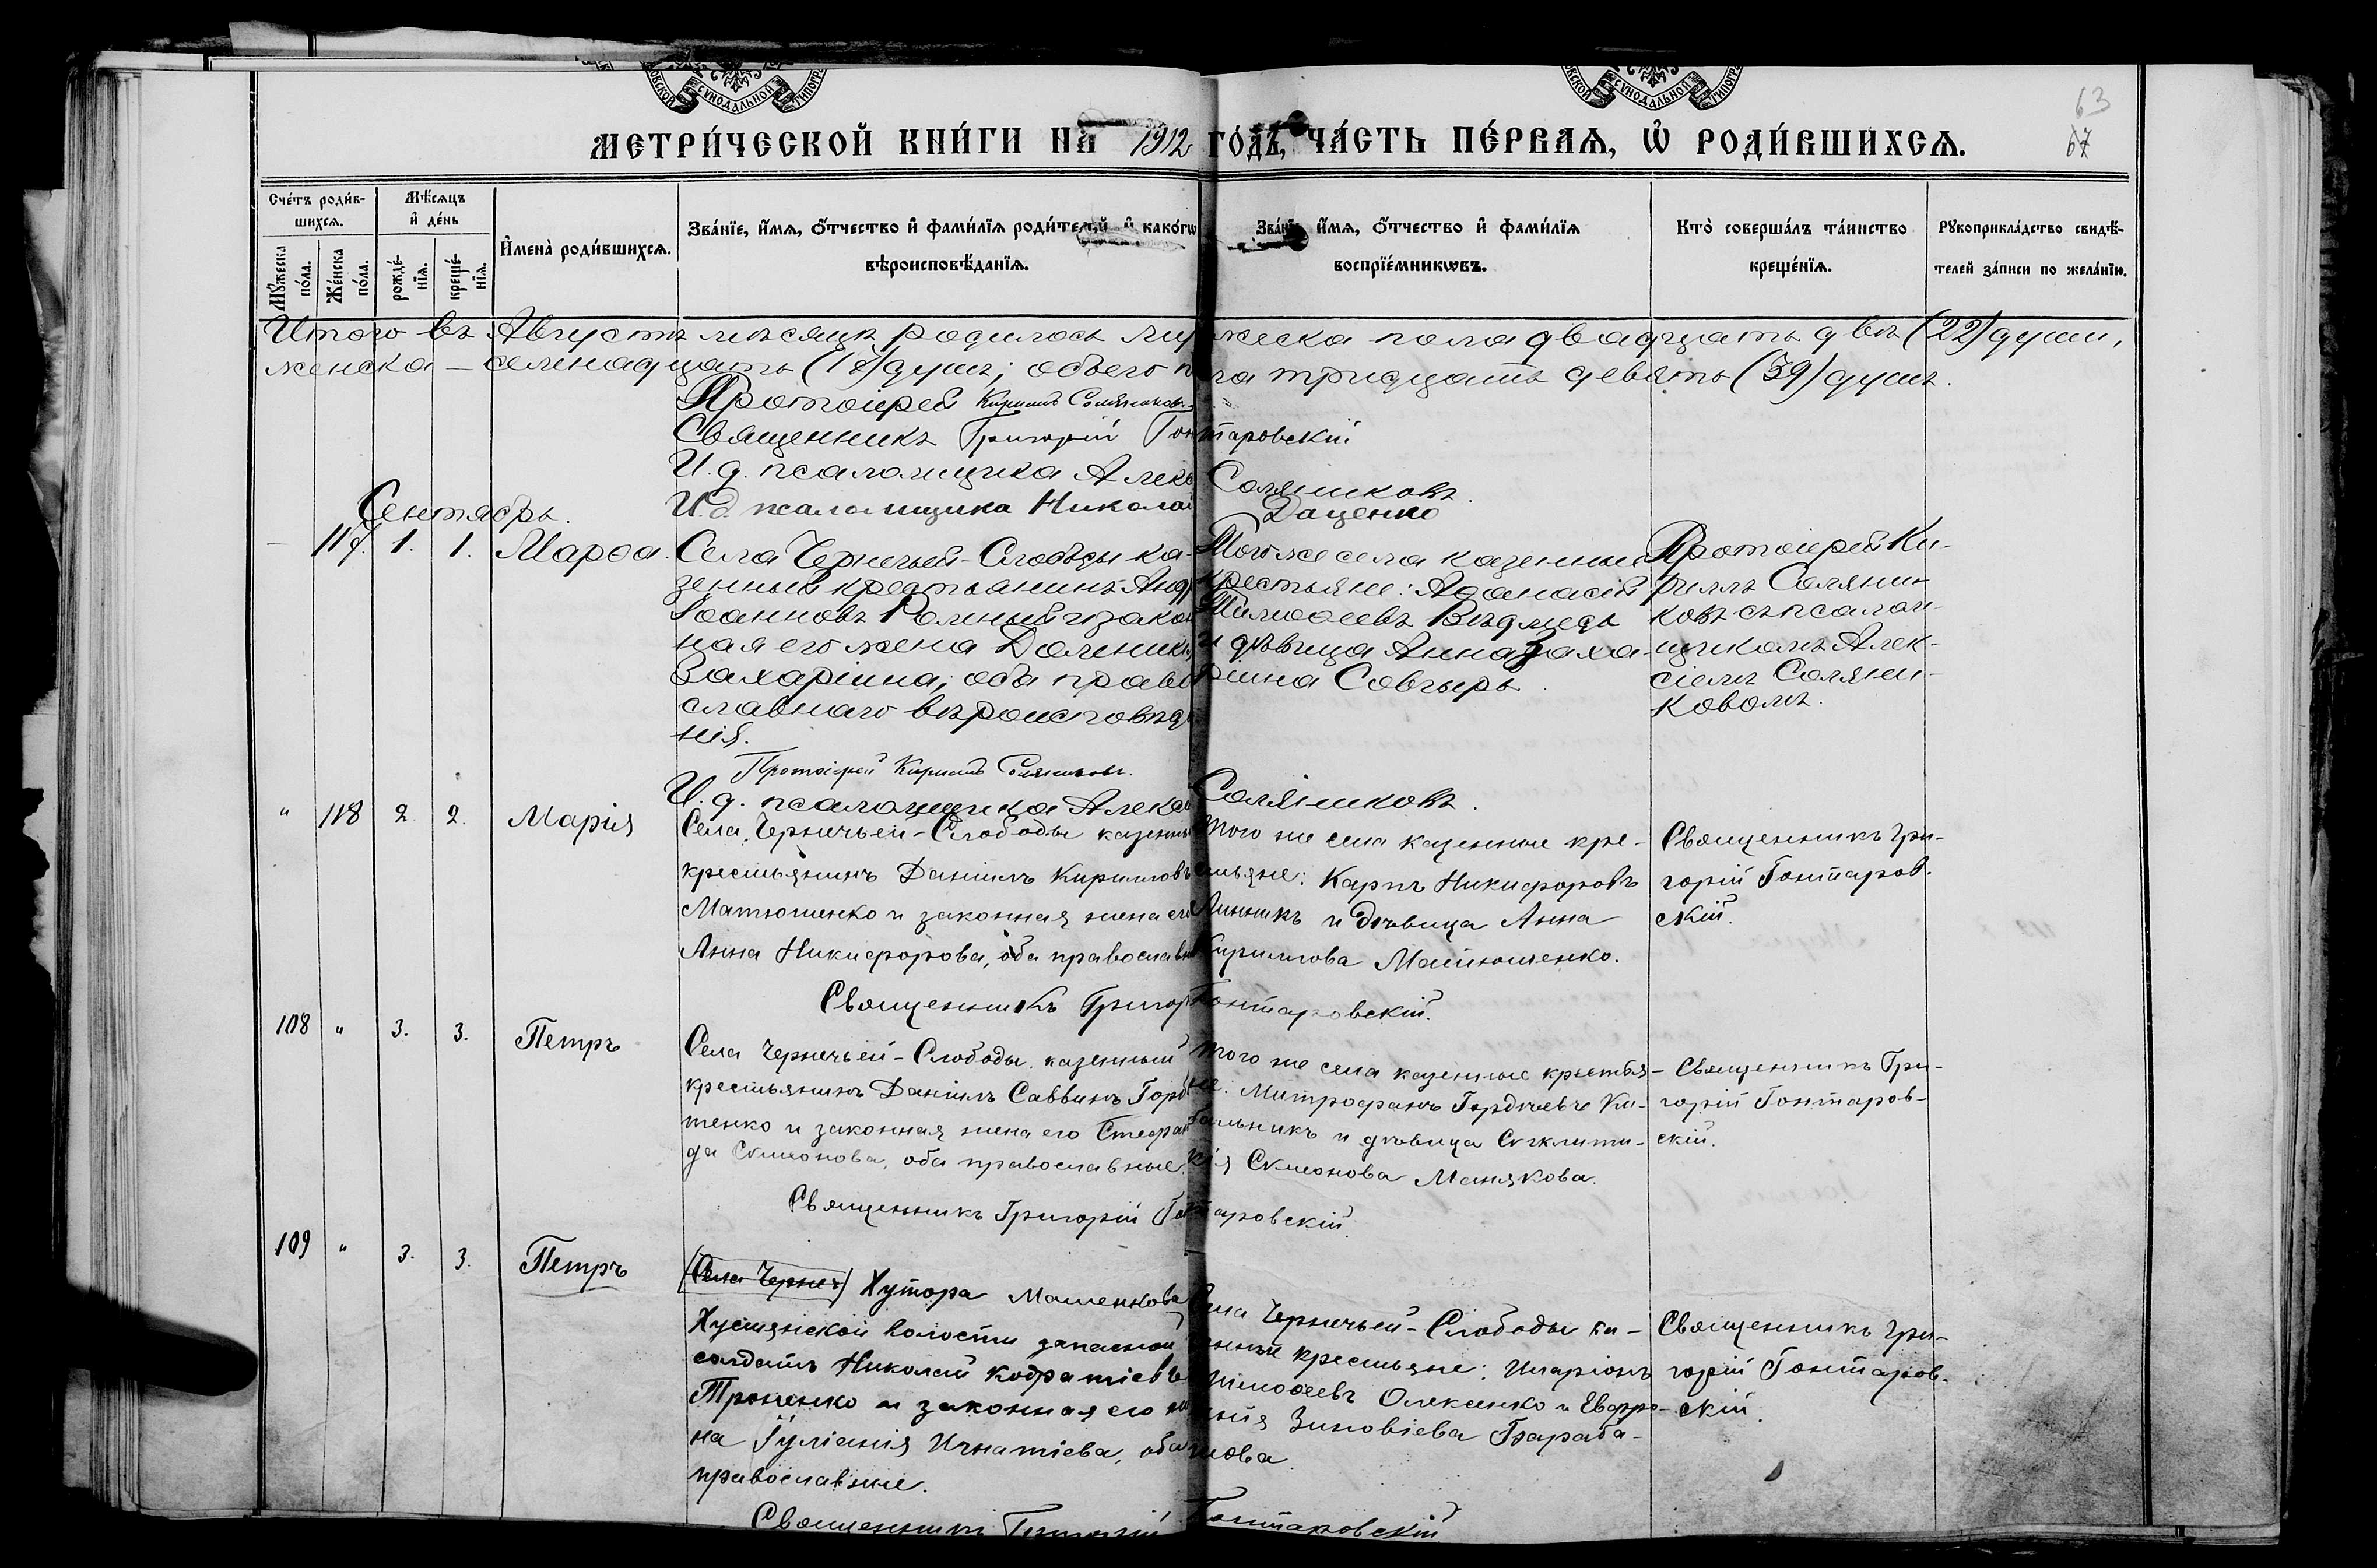 63
67
МЕТРИ́ЧЕСКОЙ КНИ́ГИ НА 1912 ГО́ДЪ, ЧА́СТЬ ПЕ́РВАЯ, Ѡ҆ РОДИ́ВШИХСЯ.
Сче́тъ роди́в-
шихся.
Мѣ́сяцъ
и҆ де́нь
Му́жеска по́ла.
Же́нска по́ла.
рожде́-
нїя.
креще́-
нїя.
И҆мена̀ роди́вшихся.
Зва́нїе, и҆́мя, ѻ҆́тчество и҆ фами́лїя роди́телей и҆ како́гѡ
вѣроисповѣ́данїя.
Зва́нїе, и҆́мя, ѻ҆́тчество и҆ фами́лїя
воспрїе́мникѡвъ.
Кто̀ соверша́лъ та́инство
креще́нїя.
Рꙋкоприкла́дство свидѣ́-
телей за́писи по жела́нїю.
Итого въ Августѣ мѣсяцѣ родилось мужеска пола двадцать двѣ (22) души,
женска – семнадцать (17) душъ; обоего пола тридцать девять (39) душъ.
Протоіерей Кириллъ Соляниковъ
Священникъ Григорій Гонтаровскій
И. д. псаломщика Алекс Солянниковъ.
И. д. псаломщика Николай Даценко
Сентябрь.
– 117. 1. 1. Марѳа.
Села Чернечьей-Слободы ка-
зенный крестьянинъ Андр
Іоанновъ Роменый и закон
ная его жена Доменик
Захаріина, оба право
славнаго вѣроисповѣд
нія.
Того же села казенные
крестьяне: Аѳанасій
Тимоѳеевъ Вѣдмедь
и дѣвица Анна Заха-
ріина Совгырь.
Протоіерей Ки-
риллъ Соляни-
ковъ съ псалом-
щикомъ Алек-
сіемъ Соляни-
ковомъ.
Протоіерей Кириллъ Солянковъ.
И. д. псаломщика Алексі Солянниковъ.
" 118 2 2. Марія
Села Чернечьей-Слободы казенны
крестьянинъ Даніилъ Кирилловъ
Матюшенко и законная жена его
Анна Никифорова, оба православн
Того же села казенные кре-
стьяне: Карпъ Никифоровъ
Линникъ и дѣвица Анна
Кириллова Матюшенко.
Священникъ Гри-
горій Гонтаров-
скій.
Священникъ Григор Гонтаровскій.
108 " 3. 3. Петръ
Села Чернечьей-Слободы казенный
крестьянинъ Даніилъ Саввинъ Горб
тенко и законная жена его Стефан
да Симеонова, оба православные.
Того же села казенные крестья-
не: Митрофанъ Гордѣевъ Ки-
бальникъ и дѣвица Синклити-
кія Симеонова Манякова.
Священникъ Гри-
горій Гонтаров-
скій.
Священникъ Григорій Гонтаровскій.
109 " 3. 3. Петръ
(Села Чернеч) Хутора Машенкова
Хустянской волости запасной
солдатъ Николай Кодратіевъ
Троненко и законная его же
на Іуліанія Игнатіева, оба
православные.
Села Чернечьей-Слободы ка-
зенные крестьяне: Иларіонъ
Тимоѳеевъ Олексенко и Евфро-
синія Зиновіева Бараба-
шова.
Священникъ Гри-
горій Гонтаров-
скій.
Священникъ Григорій Гонтаровскій